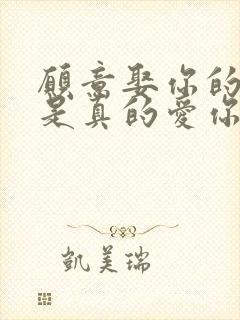 願意娶你的
是真的愛你
凱美瑞